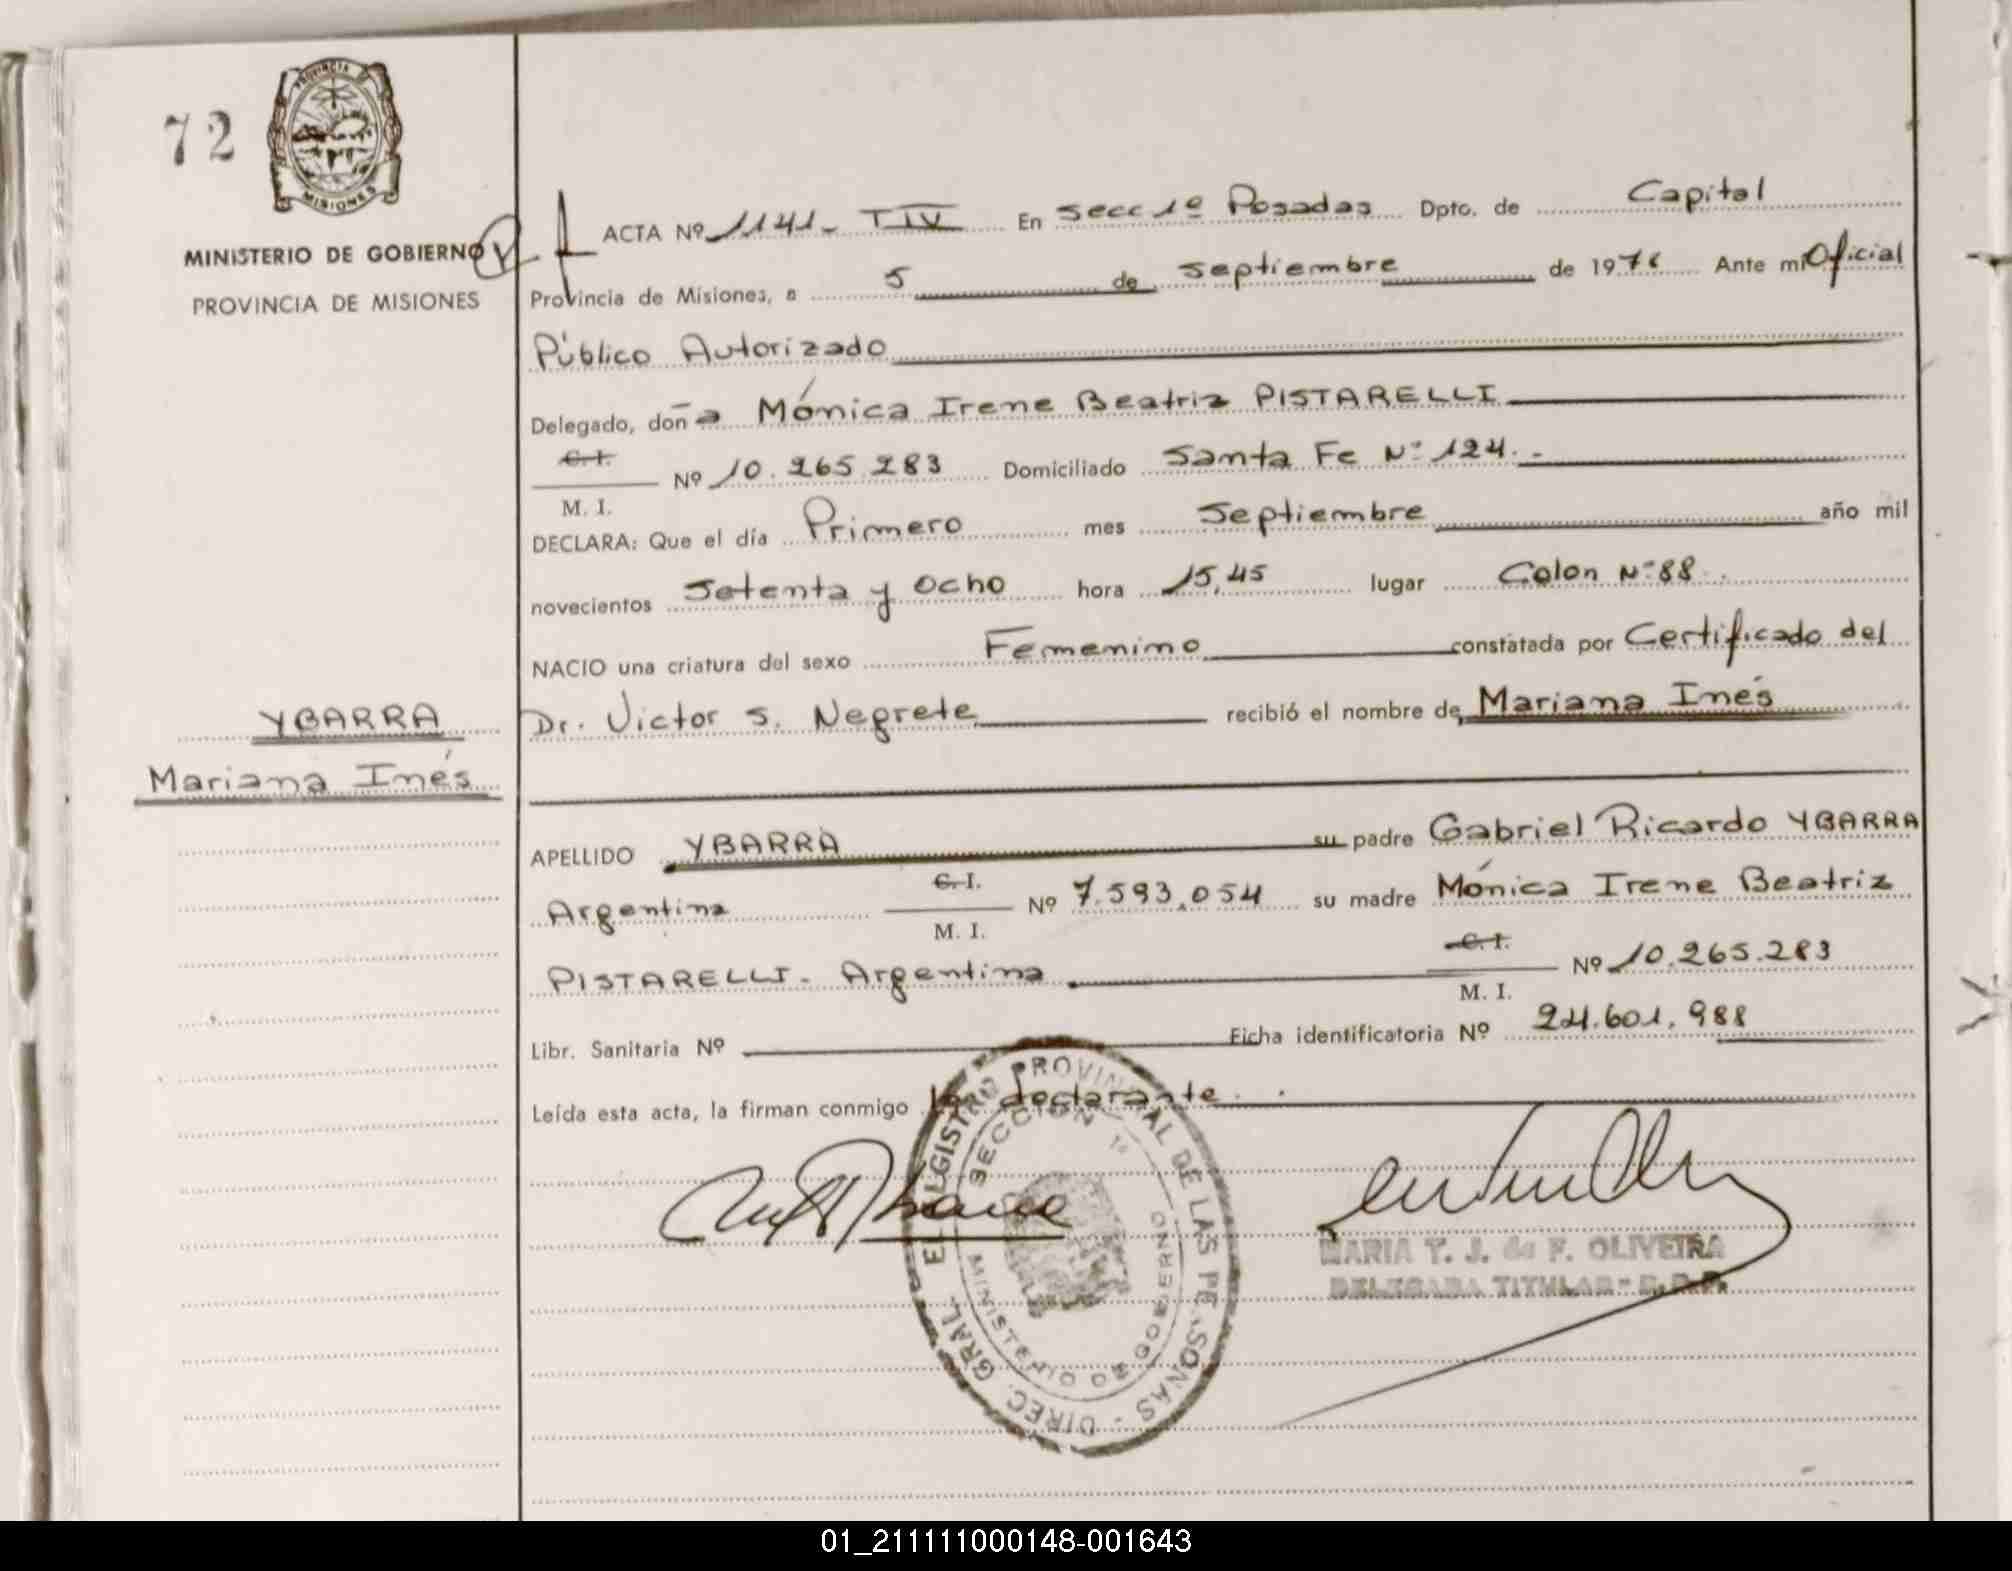 72
PROVINCIA D
MISIONES
MINISTERIO DE GOBIERNO
PROVINCIA DE MISIONES
ACTA Nº 1141- TIV En secc 1º Posadas Dpto. de Capital
Provincia de Misiones, a 5 de septiembre de 197 Ante mi Oficial
Público Autorizado
Delegado, don a Mónica Irene Beatriz PISTARELLI
C. I.
M. I.
Nº 10.265.283 Domiciliado Santa Fe Nº 124.-
DECLARA: Que el día Primero mes Septiembre año mil
novecientos Setenta y ocho hora 15,45 lugar Colon Nº 88.
NACIO una criatura del sexo Femenino constatada por Certificado del
Dr. Victor S. Negrete recibió el nombre de Mariana Inés
YBARRA
Mariana Inés
APELLIDO YBARRA su padre Gabriel Ricardo YBARRA
Argentina C. I. M. I. Nº 7.593.054 su madre Mónica Irene Beatriz
PISTARELLI- Argentina C. I. M. I. Nº 10.265.283
Libr. Sanitaria Nº Ficha identificatoria Nº 24.601.988
Leída esta acta, la firman conmigo la declarante.
DIREC. GRAL. EL REGISTRO PROVINCIAL DE LAS PERSONAS
SECCION 1ª
MINISTERIO DE GOBIERNO
MARIA T. J. de F. OLIVEIRA
DELEGADA TITULAR - R.P.P.
01_211111000148-001643